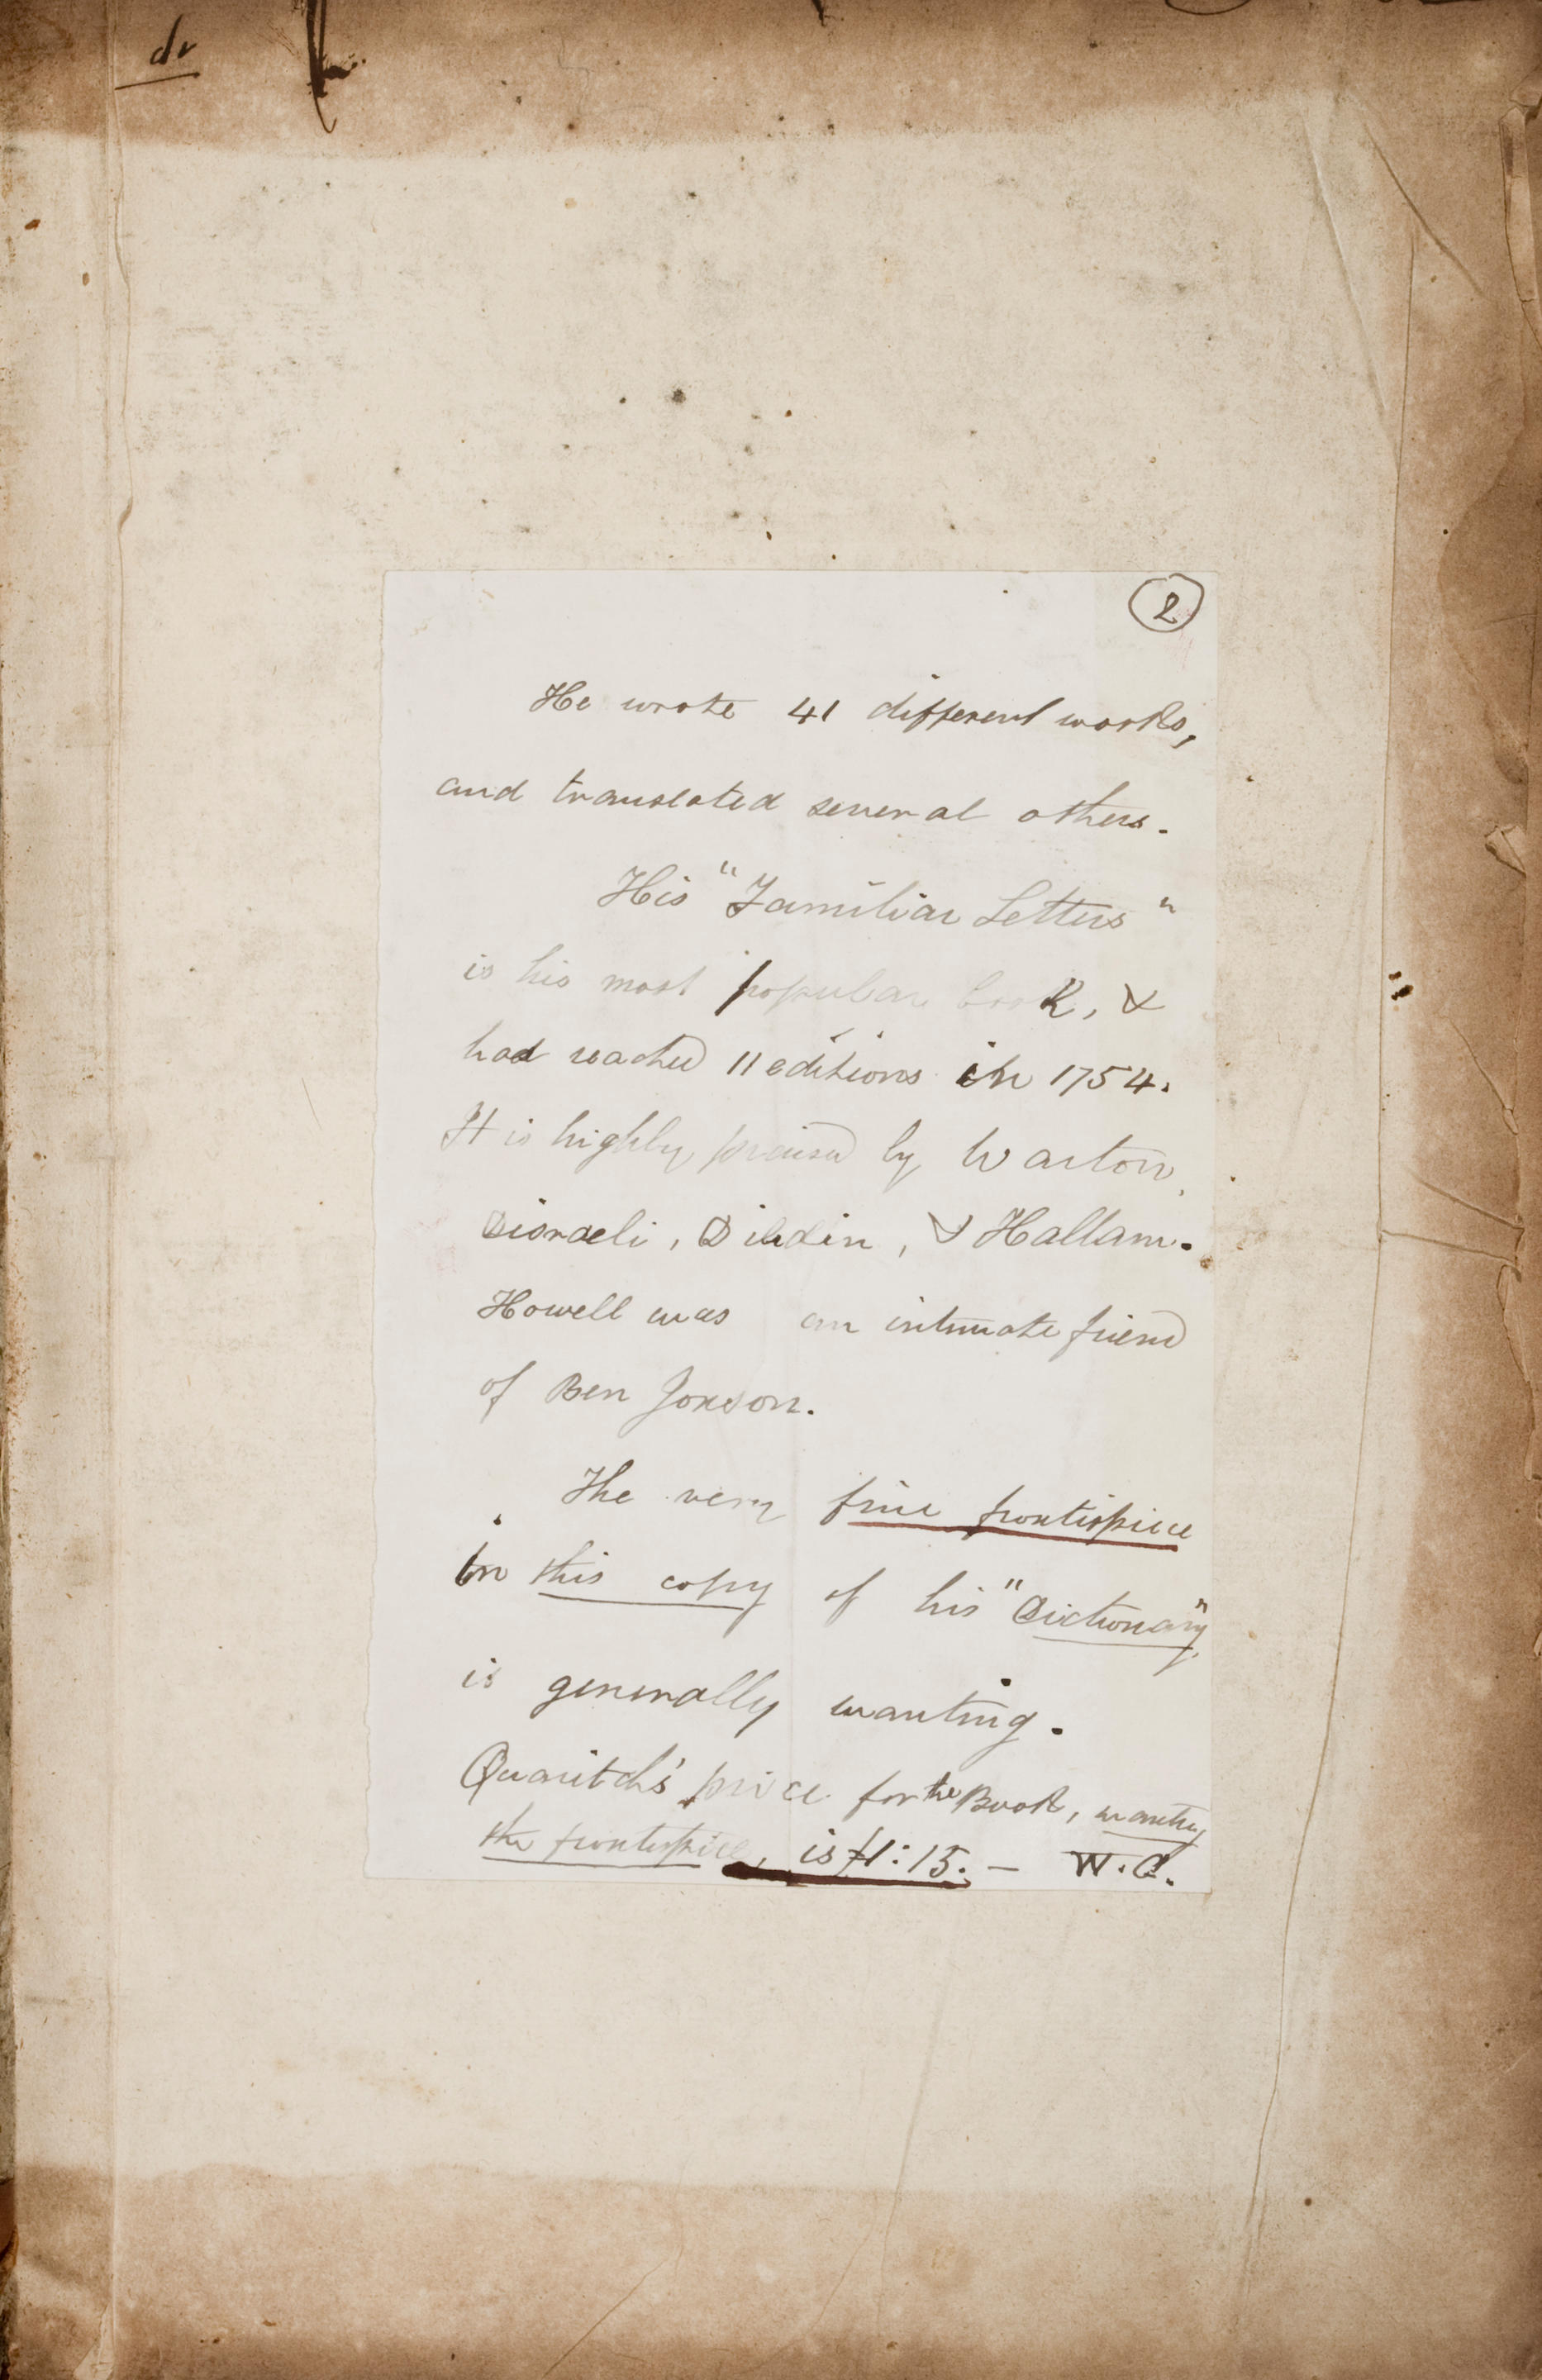 dr
2
He wrote 41 different works,
and translated several others.
His "Familiar Letters"
is his most popular book, &
had reached 11 editions in 1754.
It is highly praised by Warton,
Disraeli, Dibdin, & Hallam.
Howell was an intimate friend
of Ben Jonson.
The very fine frontispiece
in this copy of his "Dictionary"
is generally wanting.
Quaritch's price for the Book, wanting
the frontispiece, is £1:15. — W.C.